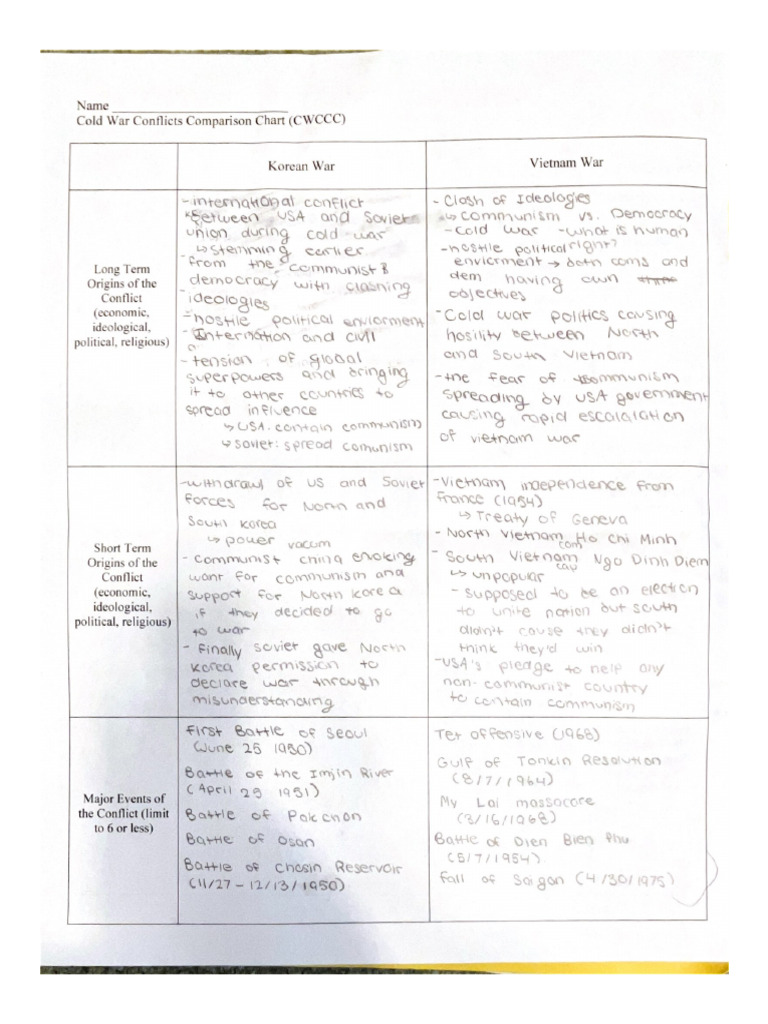 Name
Cold War Conflicts Comparison Chart (CWCCC)
Korean War
Vietnam War
Long Term
Origins of the
Conflict
(economic,
ideological,
political, religious)
-international conflict
Between USA and Soviet
union during cold war
↳ stemming earlier
from the communist &
democracy with clashing
ideologies
-hostile political enviorment
-Internation and civil
-tension of global
superpowers and bringing
it to other countries to
spread influence
↳ USA: contain communism
↳ Soviet: spread comunism
- Clash of Ideologies
↳ communism vs. Democracy
-cold war -what is human
right?
-hostile political
envicrment → both coms and
dem having own
objectives
-Cold war politics causing
hosility between North
and South Vietnam
-the fear of communism
spreading by USA government
causing rapid escalalation
of vietnam war
Short Term
Origins of the
Conflict
(economic,
ideological,
political, religious)
-withdrawl of US and Soviet
forces for North and
South Korea
↳ power vacum
-communist china
want for communism and
support for North Korea
if they decided to go
to war
- Finally soviet gave North
korea permission to
declare war through
misunderstanding
-Vietnam independence from
France (1954)
↳ Treaty of Geneva
- North Vietnam Ho Chi Minh
com
- South Vietnam Ngo Dinh Diem
↳ unpopular
- supposed to be an election
to unite nation but south
didn't cause they didn't
think they'd win
-USA's pledge to help any
non-communist country
to contain communism
Major Events of
the Conflict (limit
to 6 or less)
First Battle of Seoul
(June 25 1950)
Battle of the Imjin River
(April 25 1951)
Battle of Pakchon
Battle of Osan
Battle of Chosin Reservoir
(11/27 - 12/13/1950)
Tet offensive (1968)
Gulf of Tonkin Resolution
(8/7/1964)
My Lai massacare
(3/16/1968)
Battle of Dien Bien Phu
(5/7/1954)
Fall of Saigon (4/30/1975)